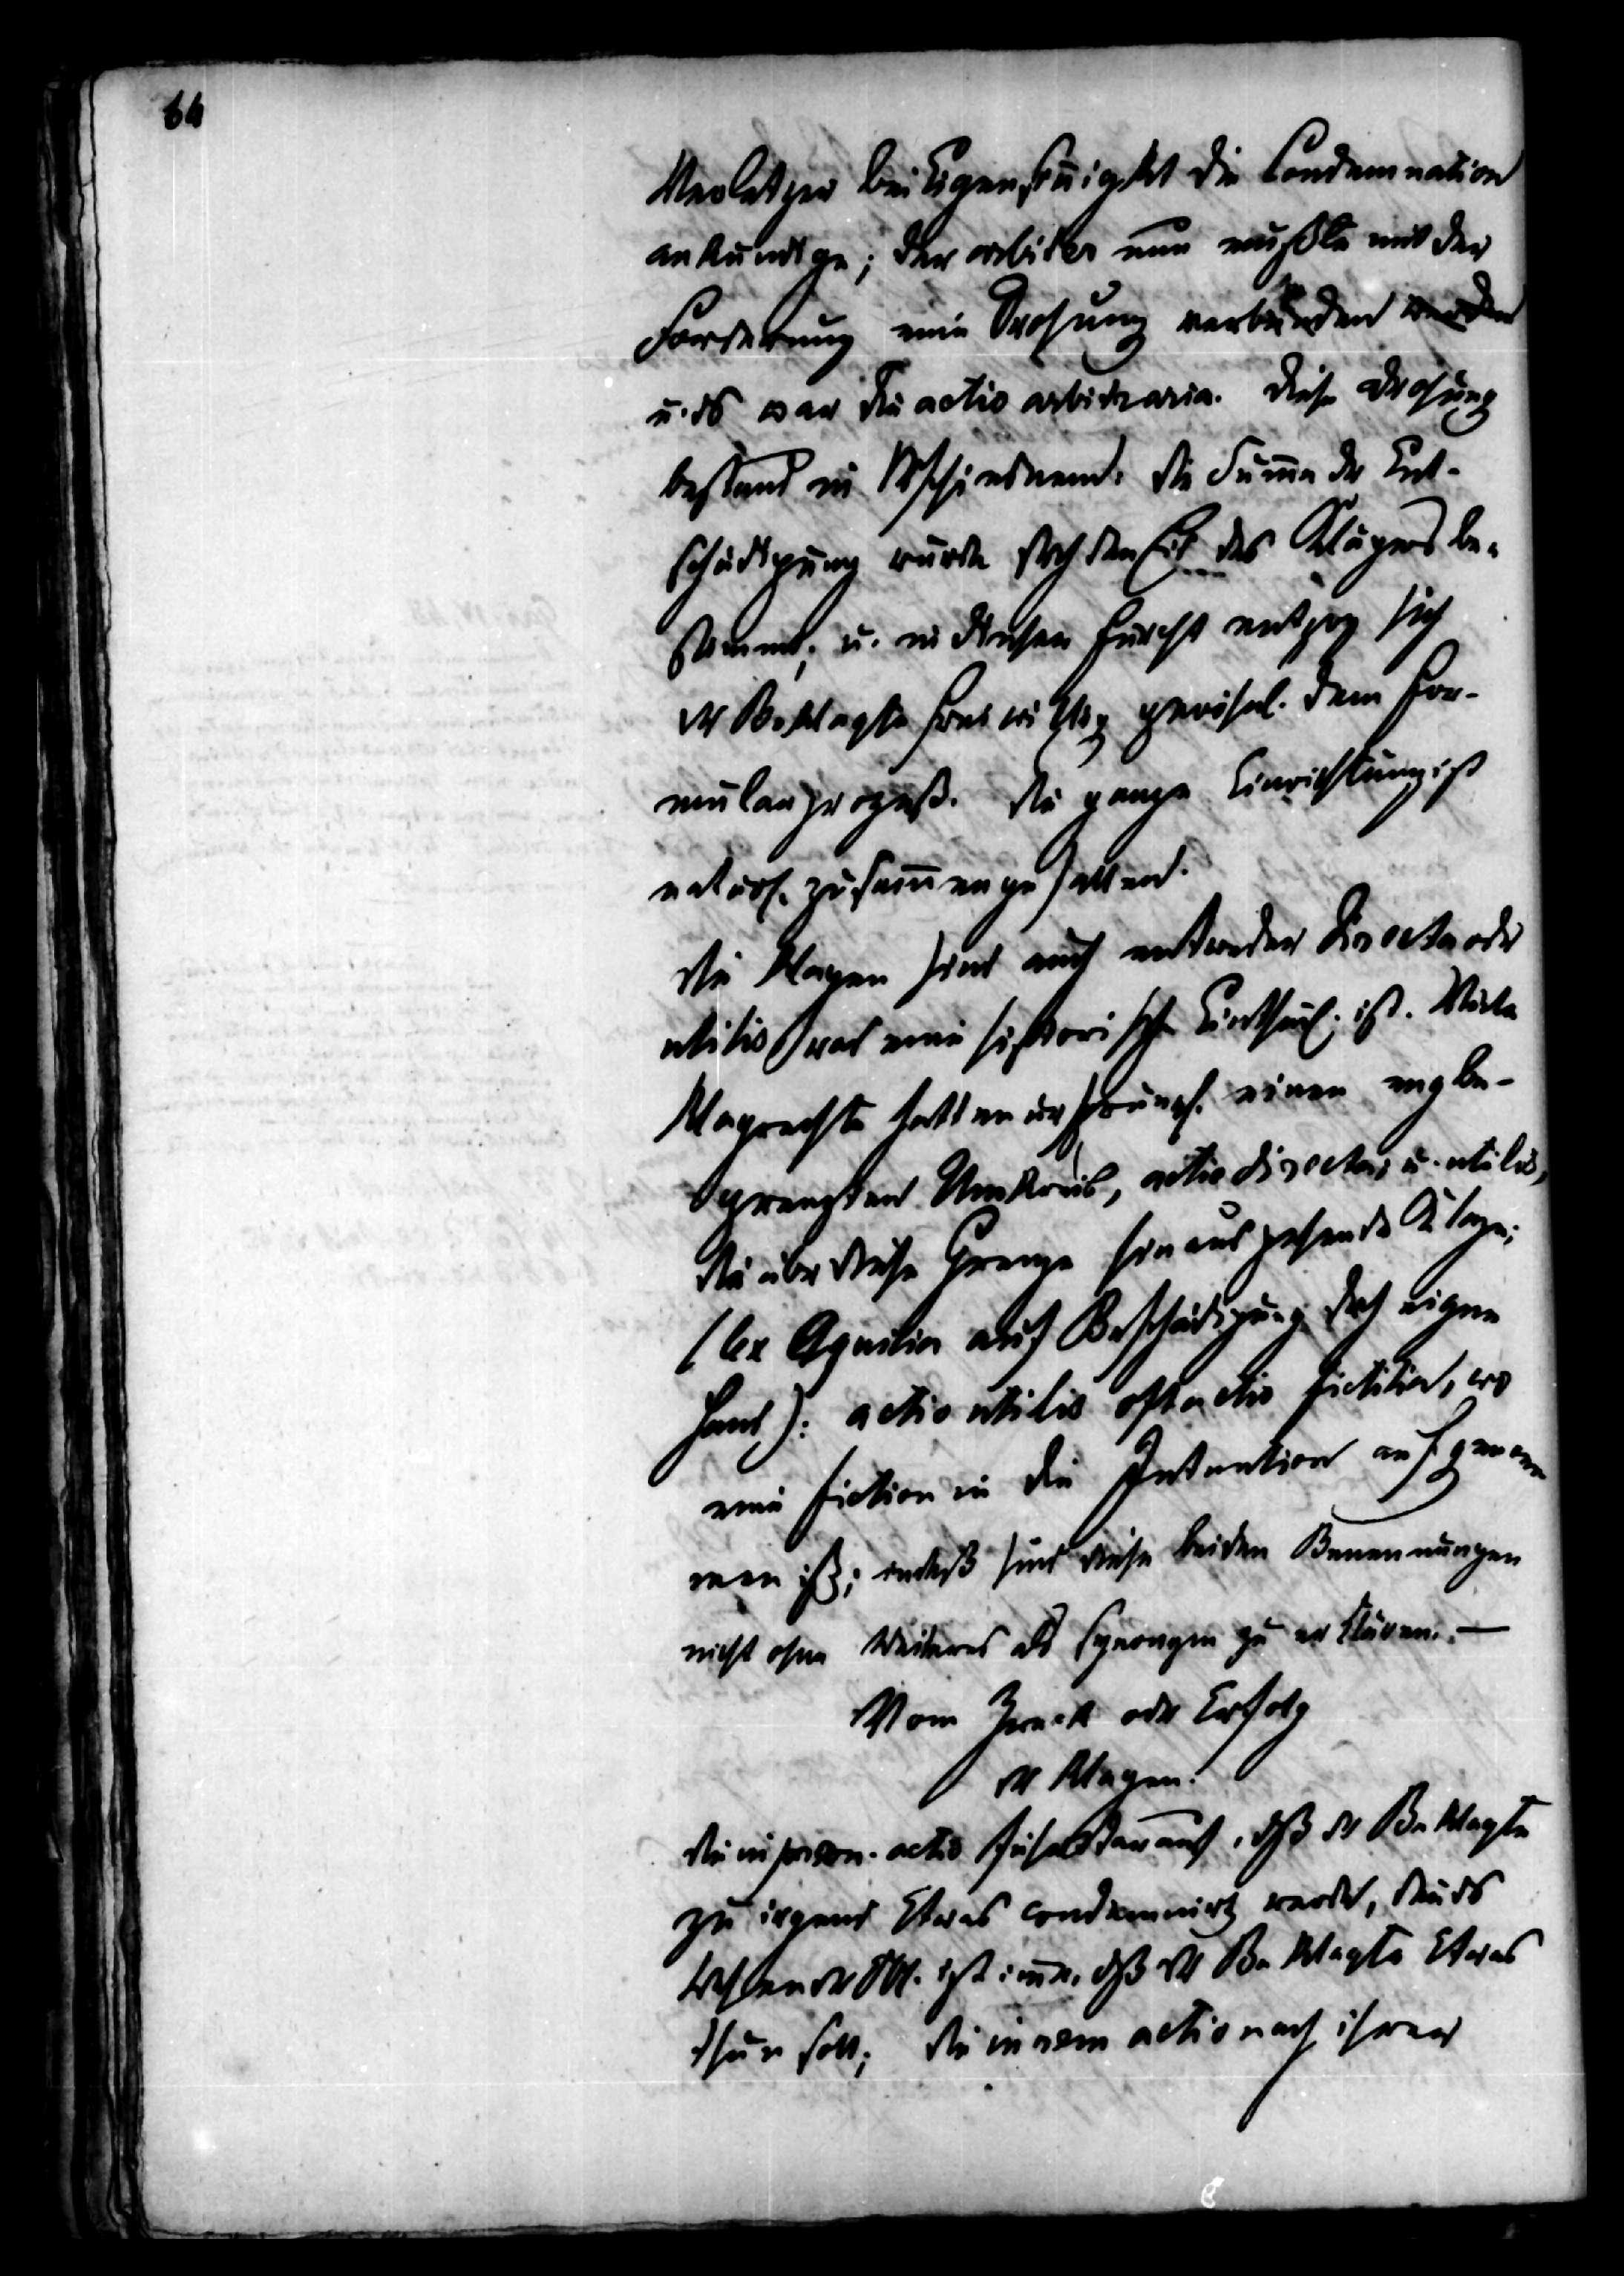 64
Verletzer bei Eigensinnigkt die Condemnation
ankündige; der arbiter nun mußte mit der
Forderung eine Drohung verbinden
u. ds war die actio arbitraria. Diese Drohung
bestand in Verschiednem: die Summe der Ent-
schädigung wurde dch den Eid des Klägers be-
stimmt; u. in dieser Furcht entzog sich
der Beklagte freiwillig gewöhnl. dem For-
mularprozeß. Die ganze Einrichtung ist
natürl. zusammengefallen.
Die Klagen sind auch entweder directa oder
utilis was eine historische Eintheil. ist. Viele
Klagrechte hatten ursprüngl. einen eng be-
grenzten Umkreis, actio directa; u. utilis,
die über diese Grenze hinausgehende Klage;
(lex Aquilia auf Beschädigung dch eigne
Hand): actio utilis oft actio fictitia, wo
eine Fiction in die Intention aufgenom
men ist; indeß sind diese beiden Benennungen
nicht ohne Weiteres als synonym zu erklären. —
Vom Zweck oder Erfolg
der Klagen.
Die in person. actio führt darauf, dß der Beklagte
zu irgend Etwas condemnirt werde, den ds
Wesen der Obl. ist imm. dß der Beklagte Etwas
thun soll; die in rem actio nach ihrer